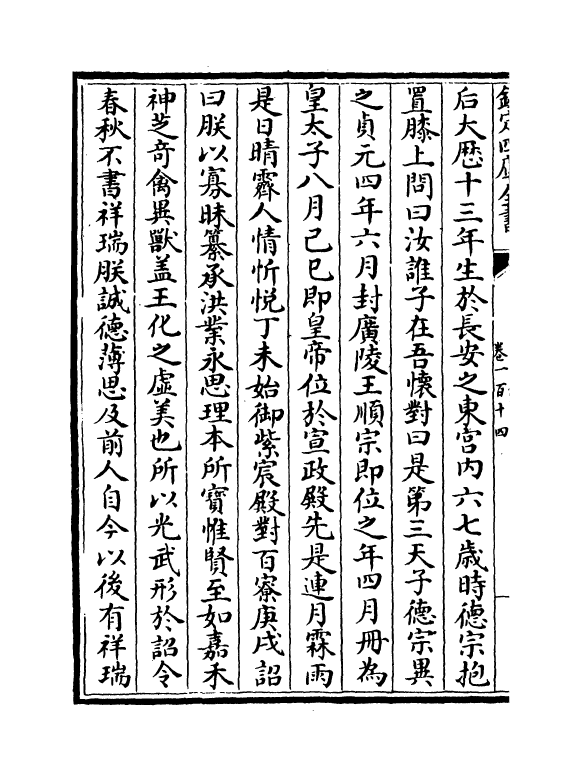 欽定四庫全書
卷一百十四
后大厯十三年生於長安之東宮内六七歳時德宗抱
置膝上問曰汝誰子在吾懷對曰是第三天子德宗異
之貞元四年六月封廣陵王順宗即位之年四月冊為
皇太子八月己巳即皇帝位於宣政殿先是連月霖雨
是日晴霽人情忻悦丁未始御紫宸殿對百寮庚戌詔
曰朕以寡昧纂承洪業永思理本所寳惟賢至如嘉禾
神芝奇禽異獸盖王化之虛美也所以光武形於詔令
春秋不書祥瑞朕誠德薄思及前人自今以後有祥瑞